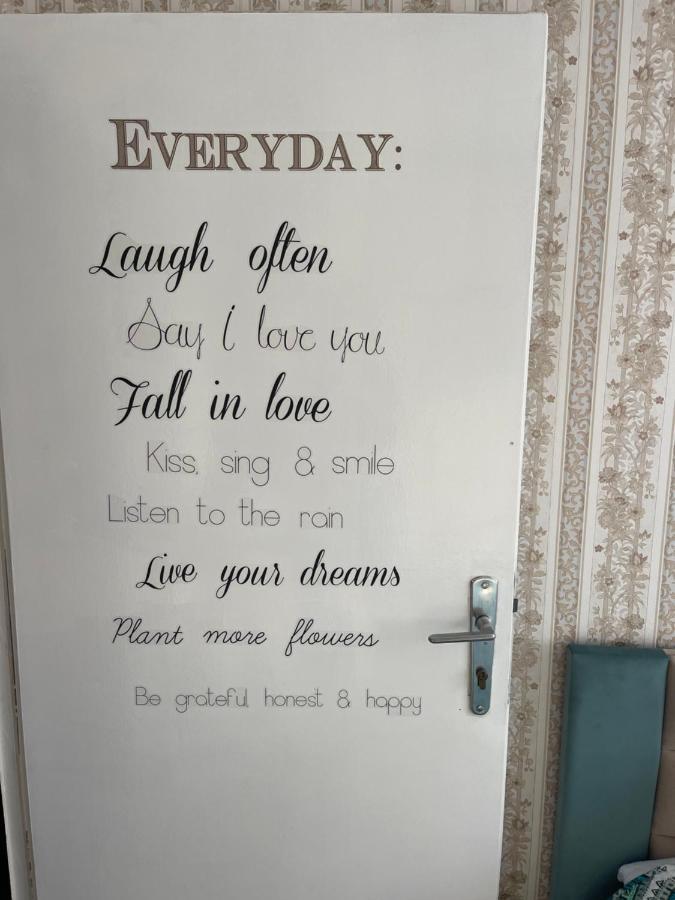 EVERYDAY:
Laugh often
Say I love you
Fall in love
Kiss, sing & smile
Listen to the rain
Live your dreams
Plant more flowers
Be grateful honest & happy